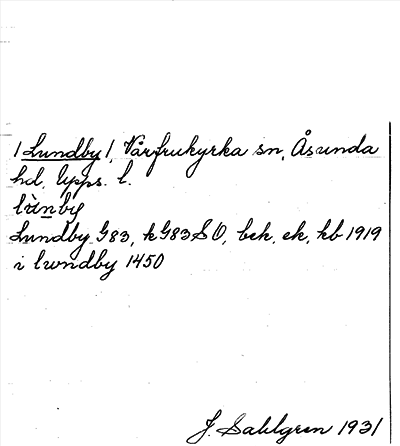 /Lundby/, Vårfrukyrka sn, Åsunda
hd, Upps. l.
lùnby
Lundby G83, kG83SO, bek, ek, kb 1919
i lwndby 1450
J. Sahlgren 1931